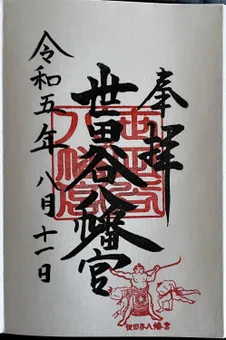 奉拝
世田谷八幡宮
八幡宮
世田谷
令和五年 八月 十一日
世田谷八幡宮